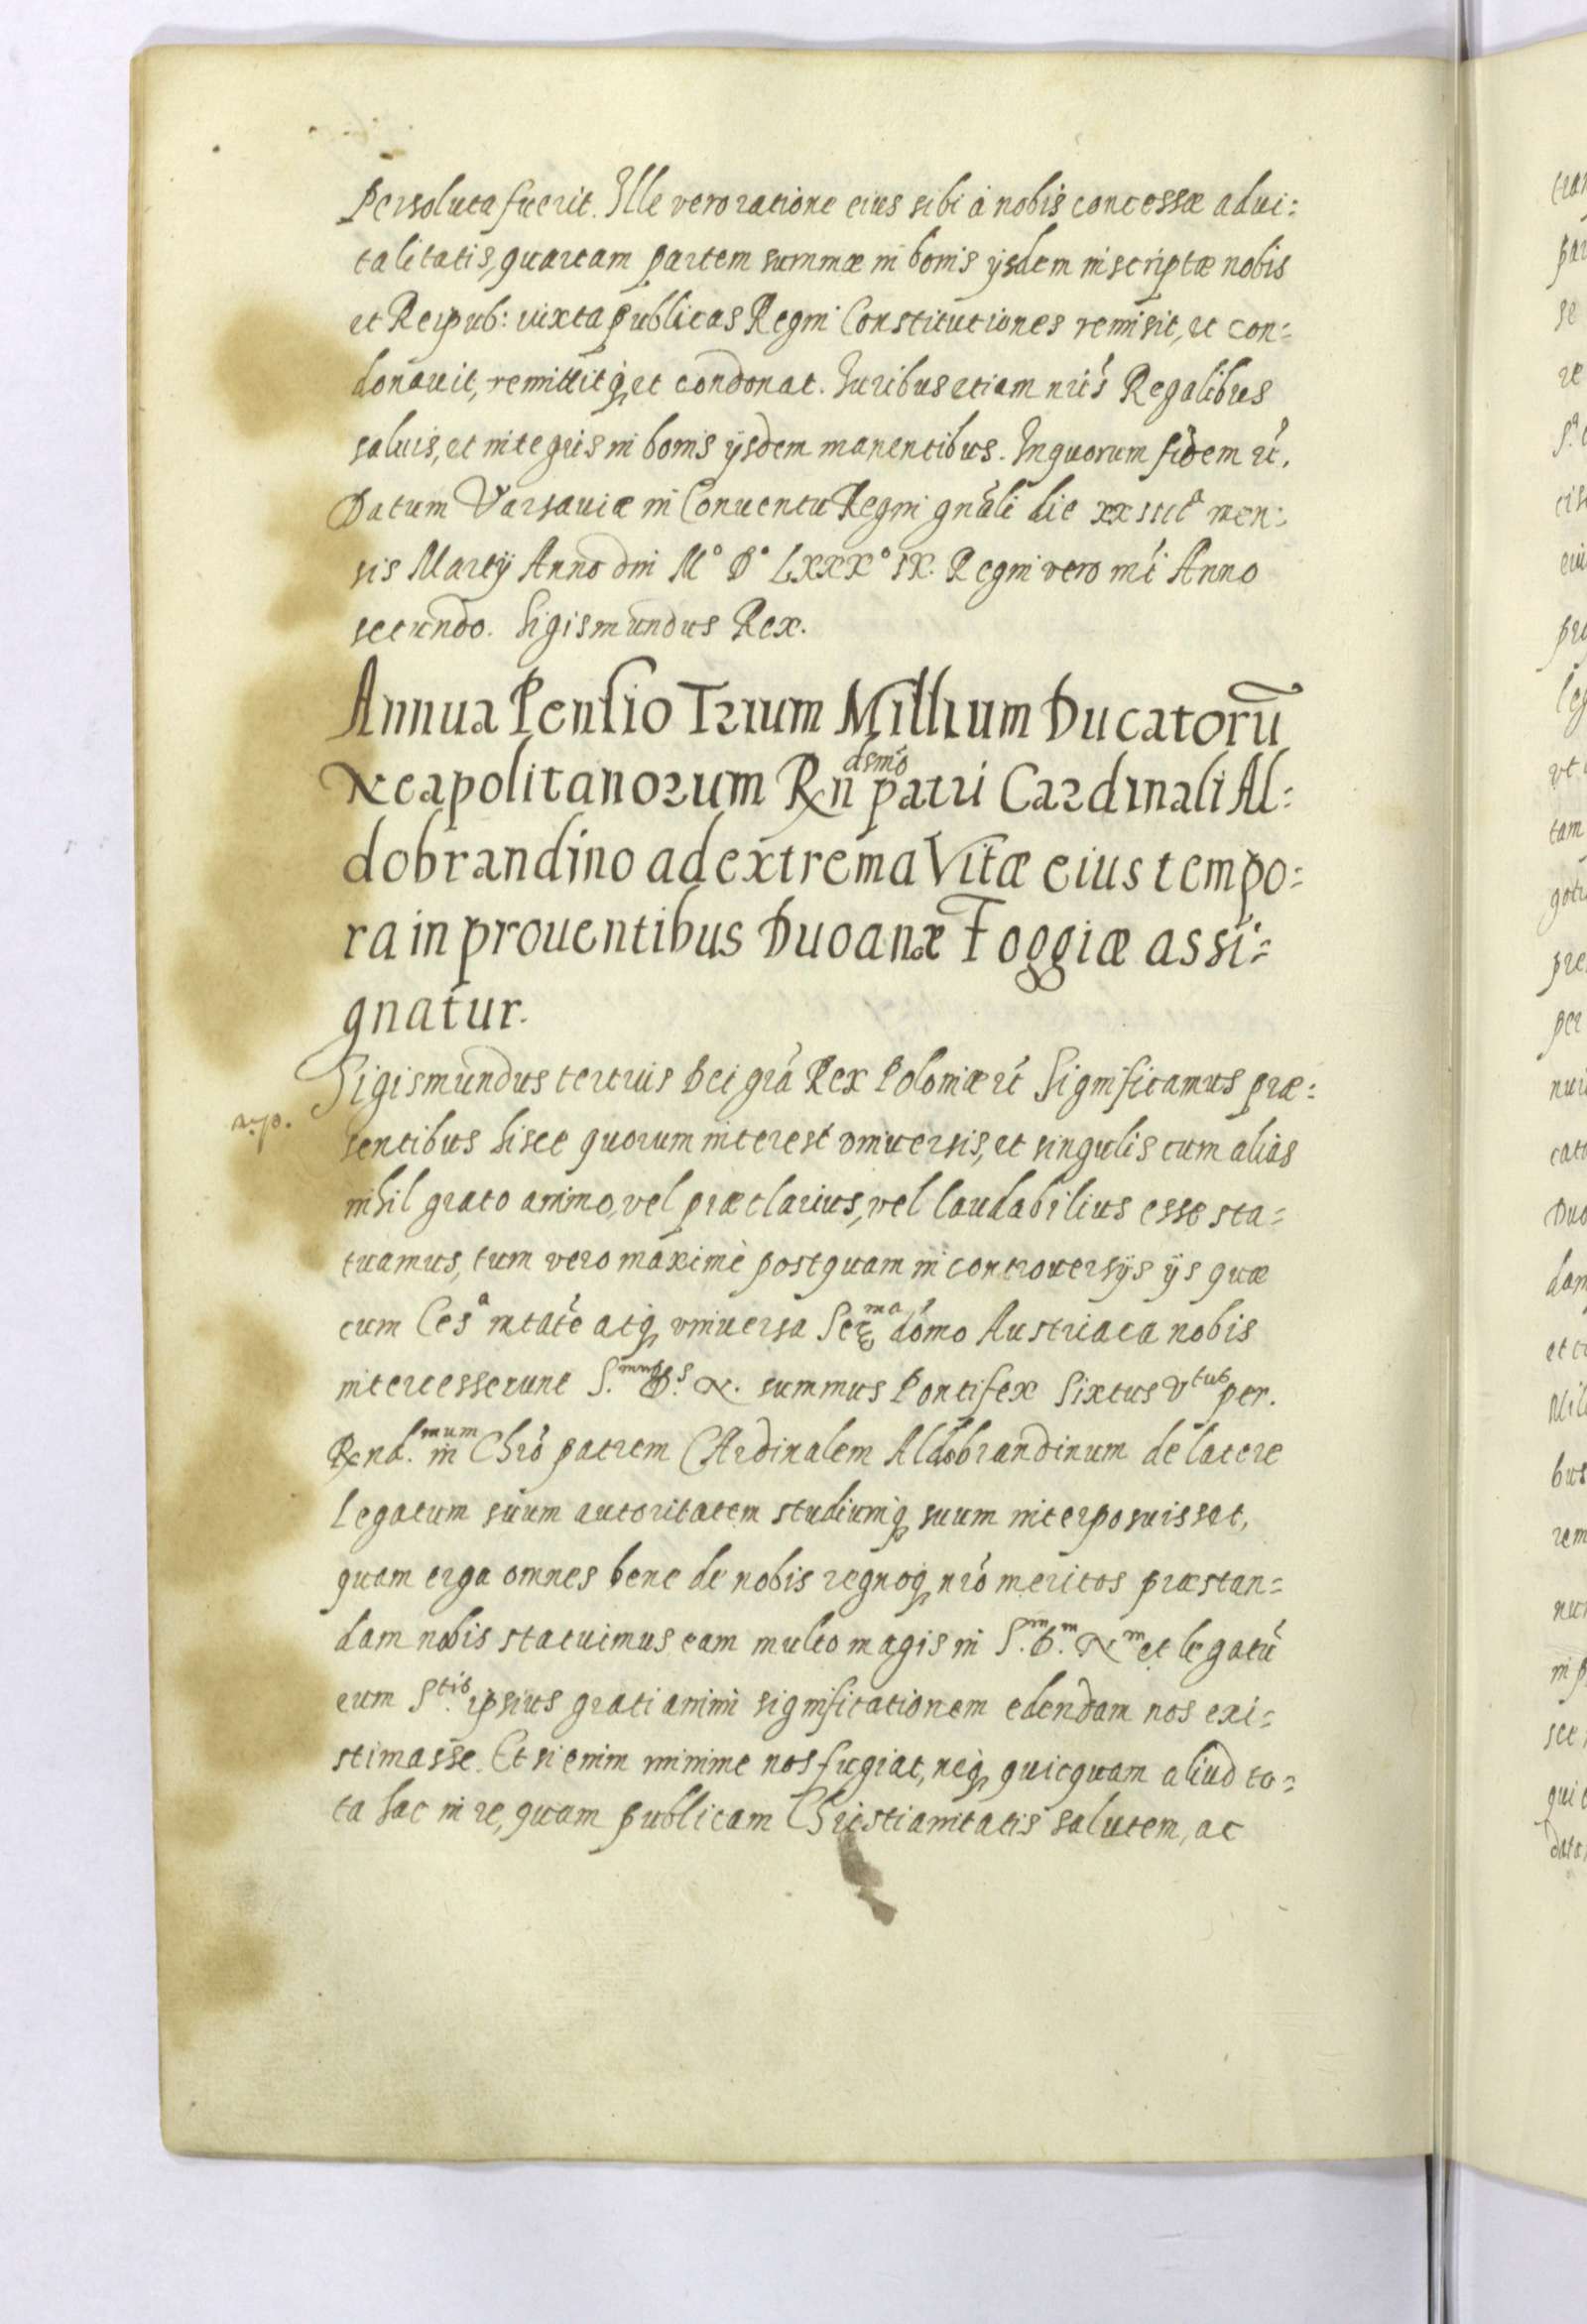 Persoluta fuerit. Ille vero ratione eius sibi à nobis concessæ adui:
talitatis, quartam partem summæ in bonis ijsdem inscriptæ nobis
et Reipub: iuxta publicas Regni Constitutiones remisit, et con:
donauit, remittitq, et condonat. Iuribus etiam nris Regalibus
saluis, et integris in bonis ijsdem manentibus. In quorum fidem et.
Datum Varsauiæ in Conuentu Regni gnali die men:
sis Martij Anno dni M° D° LXXX° IX. Regni vero nri Anno
secundo. Sigismundus Rex.
Annua Pensio Trium Millium Ducatorū
Neapolitanorum Rndsmo patri Cardinali Al:
dobrandino ad extrema Vitæ eius tempo:
ra in prouentibus Duoanæ Foggiæ assi:
gnatur.
Sigismundus tertius Dei gra Rex Poloniæ et Significamus præ:
sentibus hisce quorum interest vniuersis, et singulis cum alias
nihil grato animo, vel præclarius, vel laudabilius esse sta:
tuamus, tum vero maximè postquam in controuersijs ijs quæ
cum Cesᵃ mtate atq, vniuersa Serᵐᵃ domo Austriaca nobis
intercesserunt S.ᵐᵘˢ D.ˢ N. summus Pontifex Sixtus Vᵗᵘˢ per.
Rnd.ᵐᵘᵐ in Chro patrem CArdinalem Aldobrandinum de latere
Legatum suum autoritatem studiumq, suum interposuisset,
quam erga omnes bene de nobis regnoq, nro meritos præstan:
dam nobis statuimus eam multo magis in S.ᵐ D.ᵐ Nᵐ et legatū
eum S.ᵗⁱˢ ipsius grati animi significationem edendam nos exi:
stimasse. Et si enim minime nos fugiat, neq, quicquam aliud to:
ta hac in re, quam publicam Christianitatis salutem, ac